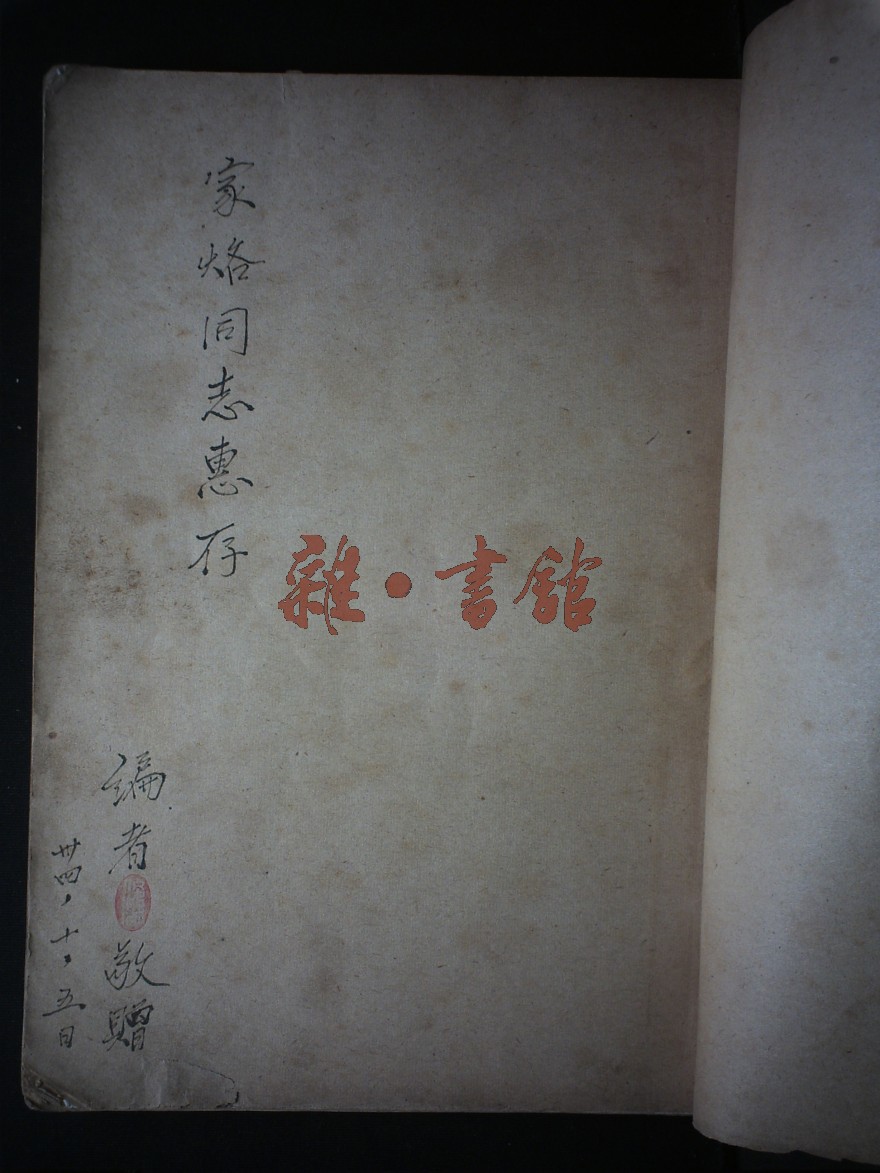 家烙同志惠存
編者敬贈
卅四、十、五日
雜·書館